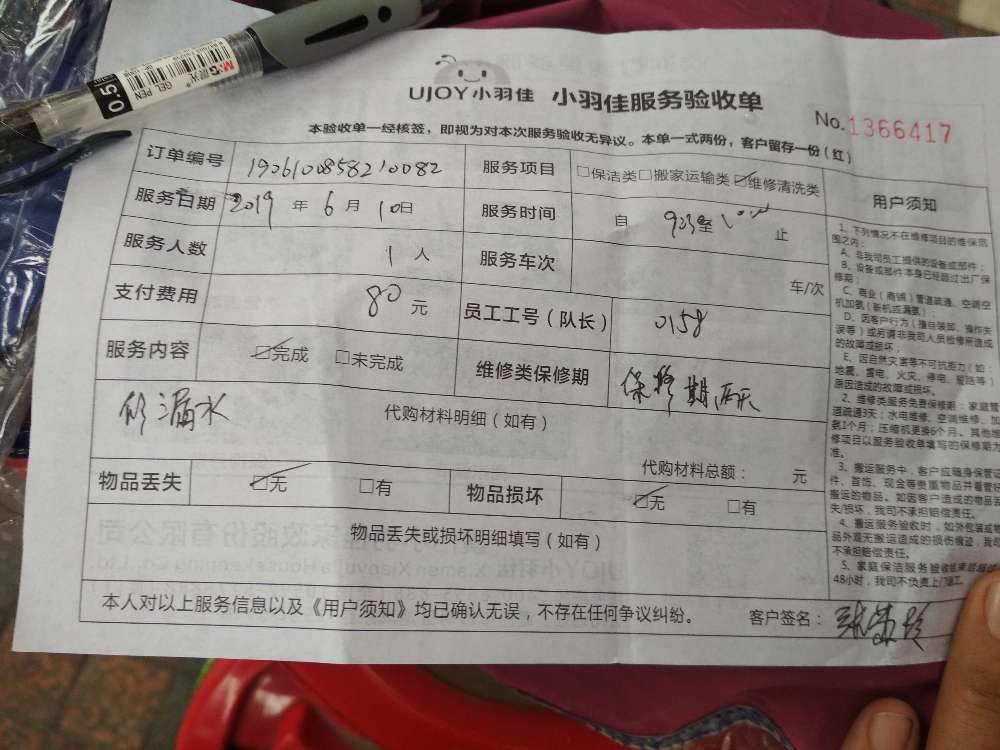 M&G 晨光
GEL PEN
0.5
UJOY小羽佳 小羽佳服务验收单
No.1366417
本验收单一经核签，即视为对本次服务验收无异议。本单一式两份，客户留存一份（红）
订单编号 1906100858210082 服务项目 □保洁类□搬家运输类☑维修清洗类
服务日期 2019年6月10日 服务时间 自 至 止
服务人数 1人 服务车次 车/次
支付费用 80元 员工工号（队长） 0158
服务内容 ☑完成 □未完成 维修类保修期 保修期
修漏水 代购材料明细（如有）
代购材料总额： 元
物品丢失 ☑无 □有 物品损坏 ☑无 □有
物品丢失或损坏明细填写（如有）
本人对以上服务信息以及《用户须知》均已确认无误，不存在任何争议纠纷。 客户签名：
用户须知
1、下列情况不在维修项目的维保范
围之内：
A、非我司员工提供的设备或部件；
B、设备或部件本身已经超过出厂保
修期；
C、商业（商铺）管道疏通、空调空
机加氨（新机或漏氨）；
D、因客户行为（擅自装卸、操作失
误等）或所请非我司人员检修所造成
的故障或损坏；
E、因自然灾害等不可抗拒力（如：
地震、雷电、火灾、停电、短路等）
原因造成的故障或损坏。
2、维修类服务免费保修期：家庭管
道疏通3天；水电维修、空调维修、加
氨1个月；压缩机更换6个月。其他维
修项目以服务验收单填写的保修期为
准。
3、搬运服务中，客户应随身保管证
件、首饰、现金等贵重物品并看管好
搬运的物品。如因客户造成的物品丢
失/损坏，我司不承担赔偿责任。
4、搬运服务验收时，如外包装或物
品外观无搬运造成的损伤痕迹，我司
不承担赔偿责任。
5、家庭保洁服务验收结束后超过
48小时，我司不负责上门返工。